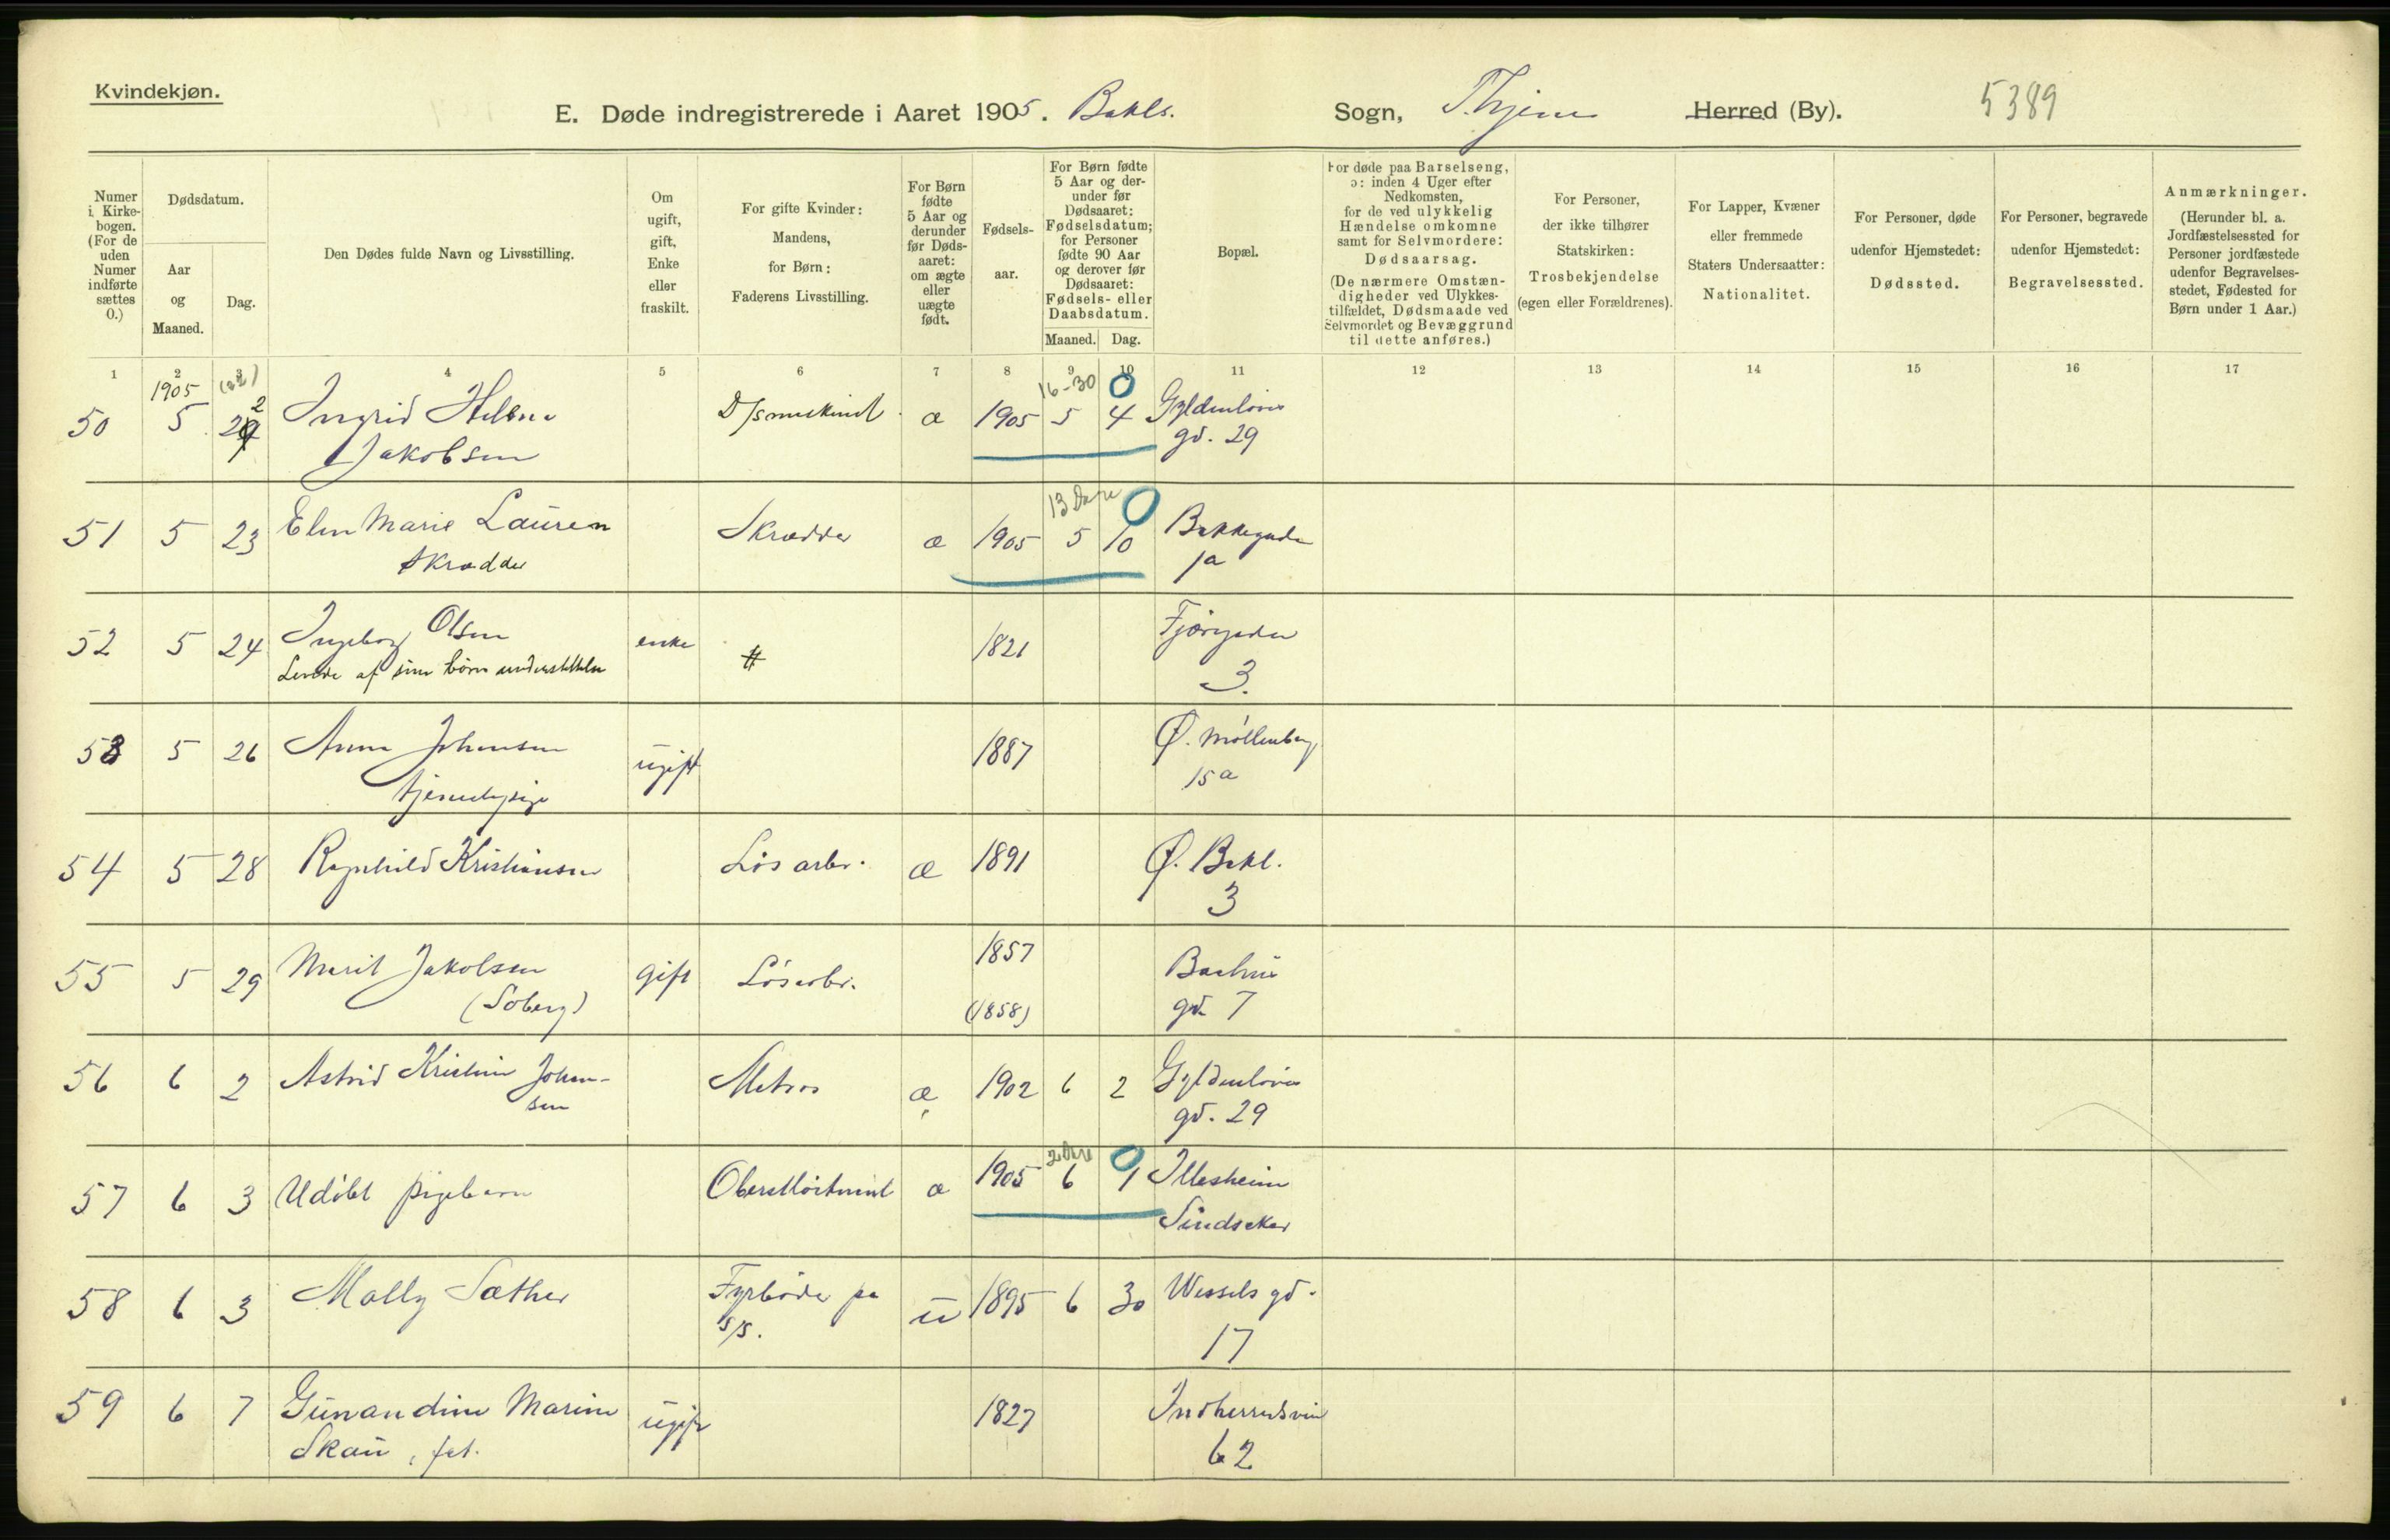 Kvindekjøn.
E. Døde indregistrerede i Aaret 1905. Bakls. Sogn, T.hjem Herred (By). 5389
Numer i Kirkebogen. (For de uden Numer indførte sættes 0.)
Dødsdatum.
Aar og Maaned.
Dag.
Den Dødes fulde Navn og Livsstilling.
Om ugift, gift, Enke eller fraskilt.
For gifte Kvinder: Mandens, for Børn: Faderens Livsstilling.
For Børn fødte 5 Aar og derunder før Dødsaaret: om ægte eller uægte født.
Fødselsaar.
For Børn fødte 5 Aar og derunder før Dødsaaret: Fødselsdatum; for Personer fødte 90 Aar og derover før Dødsaaret: Fødsels- eller Daabsdatum.
Maaned. Dag.
Bopæl.
For døde paa Barselseng, ɔ: inden 4 Uger efter Nedkomsten, for de ved ulykkelig Hændelse omkomne samt for Selvmordere: Dødsaarsag.
(De nærmere Omstændigheder ved Ulykkestilfældet, Dødsmaade ved Selvmordet og Bevæggrund til dette anføres.)
For Personer, der ikke tilhører Statskirken: Trosbekjendelse (egen eller Forældrenes).
For Lapper, Kvæner eller fremmede Staters Undersaatter: Nationalitet.
For Personer, døde udenfor Hjemstedet: Dødssted.
For Personer, begravede udenfor Hjemstedet: Begravelsessted.
Anmærkninger.
(Herunder bl. a. Jordfæstelsessted for Personer jordfæstede udenfor Begravelsesstedet, Fødested for Børn under 1 Aar.)
1 2 3 4 5 6 7 8 9 10 11 12 13 14 15 16 17
1905 (22) 16-30 0
50 5 22 Ingrid Helene D/smaskinist æ 1905 5 4 Gyldenløves
Jakobsen gd. 29
13 Dage 0
51 5 23 Elen Marie Lauren Skrædder æ 1905 5 10 Bakkegaden
Skrædder 1a
52 5 24 Ingeborg Olsen enke 1821 Fjærgaden
Levede af sine børns understøttelse 3.
53 5 26 Anna Johansen ugift 1887 Ø. Møllenberg
tjenestepige 15a
54 5 28 Ragnhild Kristiansen Løsarbr. æ 1891 Ø. Bakl.
3
55 5 29 Marit Jakobsen gift Løsarbr. 1857
(Soberg) (1858) gd. 7
56 6 2 Astrid Kristine Johan- Matros æ 1902 6 2 Gyldenløves
sen gd. 29
0
57 6 3 Udøbt pigebarn Oberstløitnant æ 1905 6 1 Ilesheim
58 6 3 Molly Sæther Fyrbøder pa u 1895 6 30 Wessels gd.
s/s. 17
59 6 7 Gunandine Marine ugift 1827 Indherredsvei
Skau, fat. 62